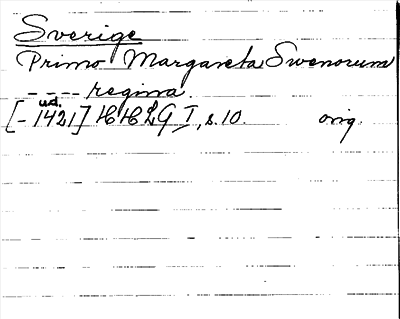 Sverige
Primo Margareta Swenorum
---- regina.
ud.
[- 1421] HH I, s. 10. orig.